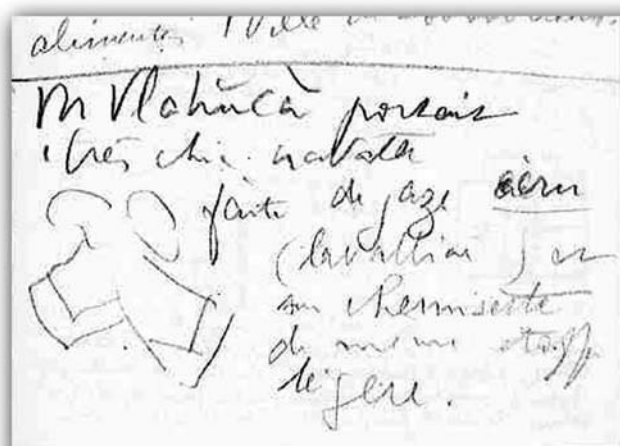 alimente
M Vlahuca portait
très chic cravate
faite de gaze écru
(lavallière) et
un chemisette
de meme étoffe
légere.